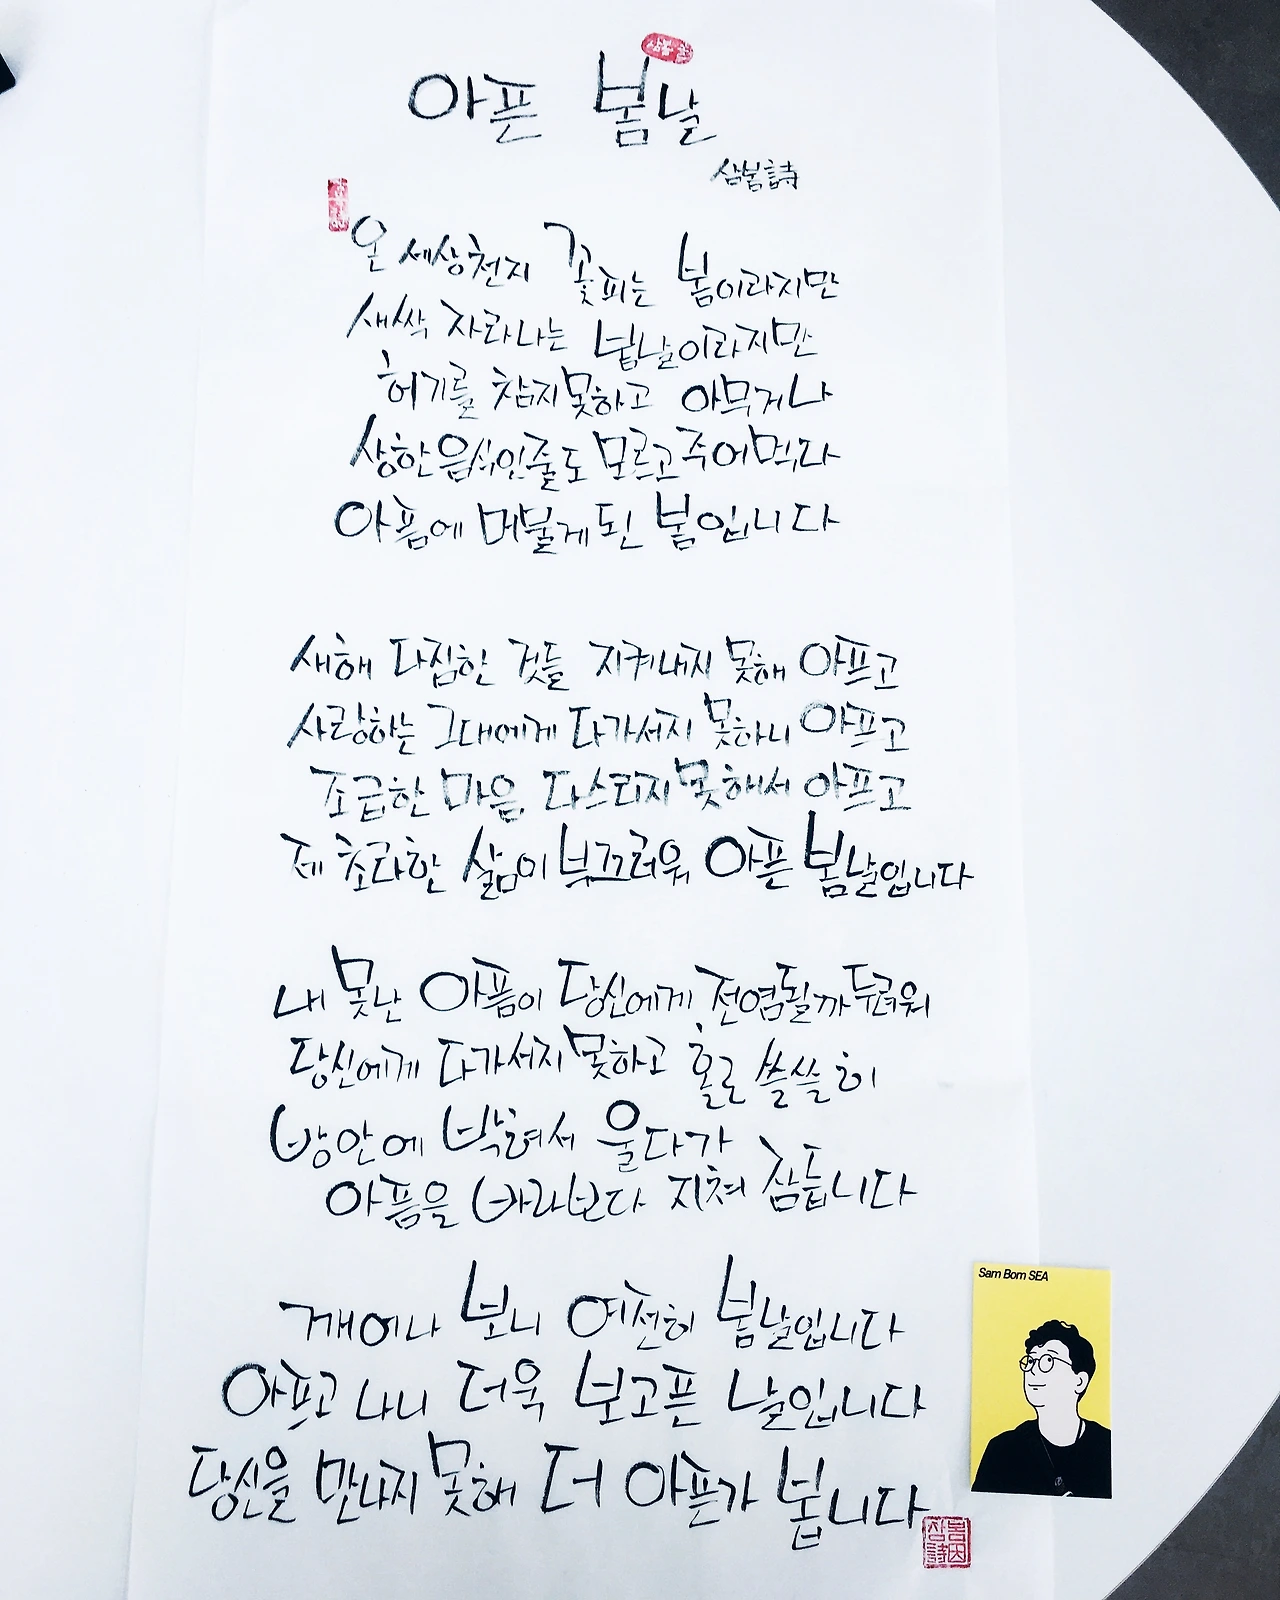 아픈 봄날
삼봄詩
온 세상천지 꽃피는 봄이라지만
새싹 자라나는 봄날이라지만
허기를 참지못하고 아무거나
상한음식인줄도 모르고 주어먹다
아픔에 머물게 된 봄입니다
새해 다짐한 것들 지켜내지 못해 아프고
사랑하는 그대에게 다가서지 못하니 아프고
조급한 마음 다스리지 못해서 아프고
제 초라한 삶이 부끄러워 아픈 봄날입니다
내 못난 아픔이 당신에게 전염될까 두려워
당신에게 다가서지 못하고 홀로 쓸쓸히
방안에 박혀서 울다가
아픔을 바라보다 지쳐 잠듭니다
깨어나 보니 여전히 봄날입니다
아프고 나니 더욱 보고픈 날입니다
당신을 만나지 못해 더 아픈가 봅니다
Sam Bom SEA